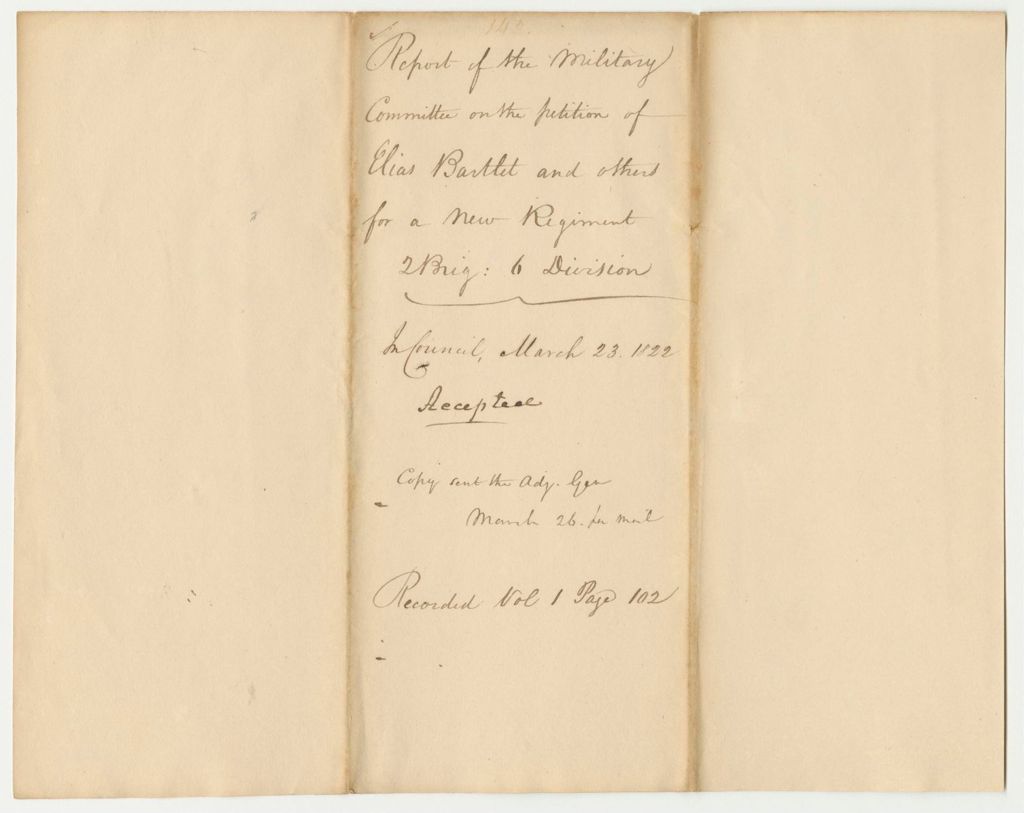 Report of the Military
Committee on the petition of
Elias Bartlet and others
for a New Regiment
2 Brig: 6 Division
In Council, March 23. 1822
Accepted
Copy sent the Adj. Gen
March 26. per mail
Recorded Vol 1 Page 102